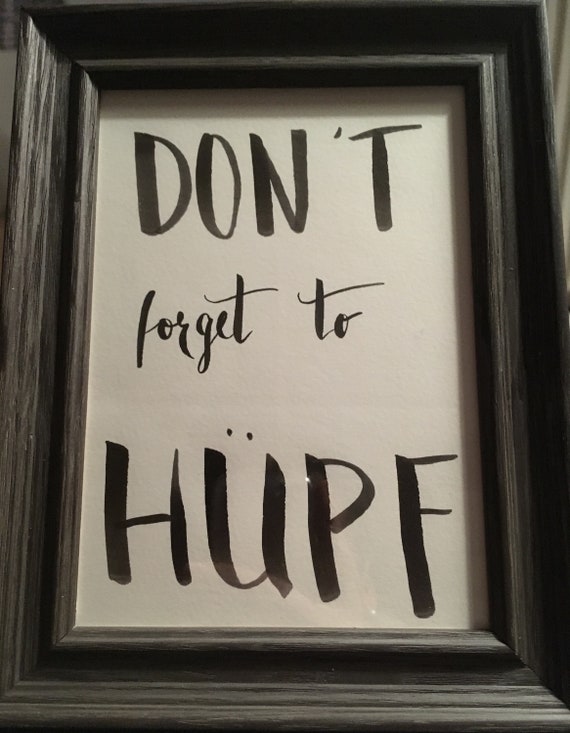 DON'T
forget to
HÜPF